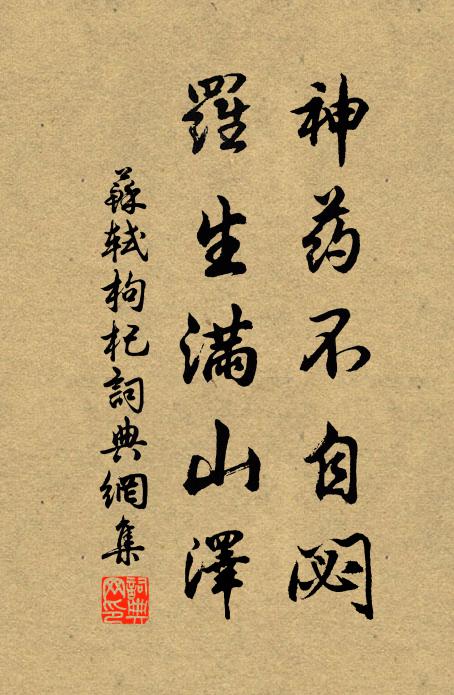 神药不自閟
羅生滿山澤
蘇軾枸杞詞典網集
詞典
网印